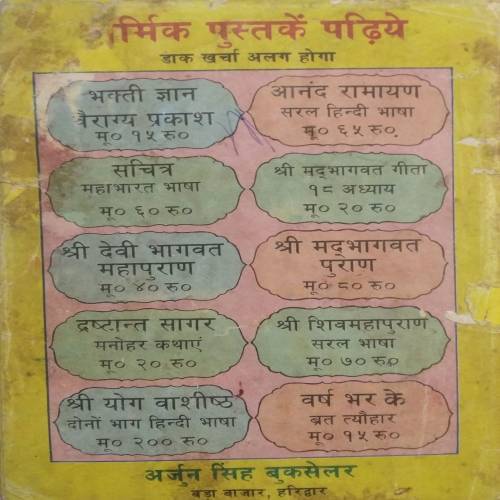 र्मिक पुस्तकें पढ़िये
डाक खर्चा अलग होगा
भक्ती ज्ञान
वैराग्य प्रकाश
मू० १५ रु०
आनंद रामायण
सरल हिन्दी भाषा
मू० ६५ रु०
सचित्र
महाभारत भाषा
मू० ६० रु०
श्री मद्भागवत गीता
१८ अध्याय
मू० २० रु०
श्री देवी भागवत
महापुराण
मू० ४० रु०
श्री मद्भागवत
पुराण
मू० ८० रु०
द्रष्टान्त सागर
मनोहर कथाएं
मू० २० रु०
श्री शिवमहापुराण
सरल भाषा
मू० ७० रु०
श्री योग वाशीष्ठ
दोनों भाग हिन्दी भाषा
मू० २०० रु०
वर्ष भर के
ब्रत त्यौहार
मू० १५ रु०
अर्जुन सिंह बुकसेलर
बड़ा बाजार, हरिद्वार